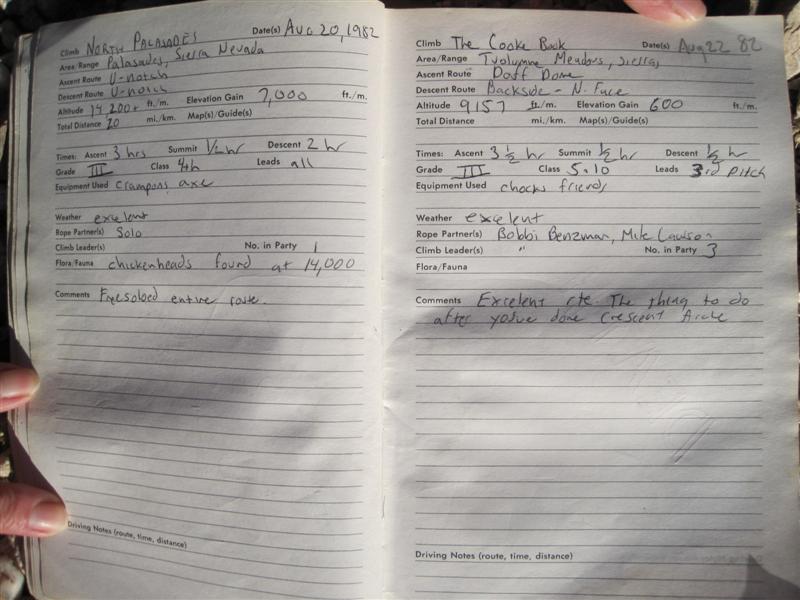 Climb NORTH PALASADES Date(s) Aug 20, 1982
Area/Range Palasades, Sierra Nevada
Ascent Route U-notch
Descent Route U-notch
Altitude 14,200+ ft./m. Elevation Gain 7,000 ft./m.
Total Distance 20 mi./km. Map(s)/Guide(s)
Times: Ascent 3 hrs Summit 1/2 hr Descent 2 hr
Grade III Class 4th Leads all
Equipment Used crampons axe
Weather exelent
Rope Partner(s) Solo
Climb Leader(s) No. in Party 1
Flora/Fauna chickenheads found at 14,000
Comments Freesoloed entire route.
Driving Notes (route, time, distance)
Climb The Cooke Book Date(s) Aug 22 82
Area/Range Tuolumne Meadows, Sierras
Ascent Route Daff Dome
Descent Route Backside - N. Face
Altitude 9157 ft./m. Elevation Gain 600 ft./m.
Total Distance mi./km. Map(s)/Guide(s)
Times: Ascent 3 1/2 hr Summit 1/2 hr Descent 1/2 hr
Grade III Class 5.10 Leads 3rd pitch
Equipment Used chocks friends
Weather exelent
Rope Partner(s) Bobbi Benzman, Mike Lawson
Climb Leader(s) " No. in Party 3
Flora/Fauna
Comments Excelent rte. The thing to do
after youve done Crescent Arche
Driving Notes (route, time, distance)